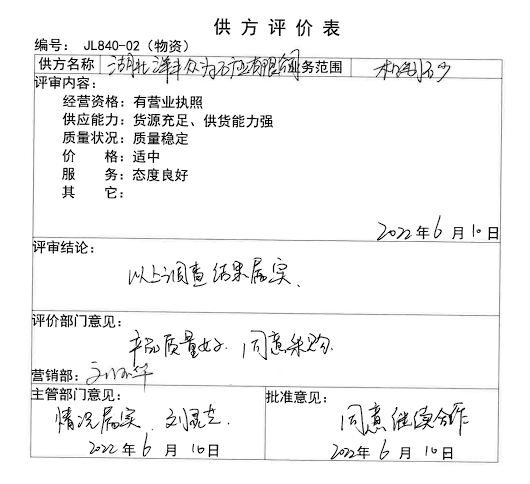 供方评价表
编号: JL840-02(物资)
供方名称 湖北洋丰 业务范围 机制砂
评审内容:
经营资格: 有营业执照
供应能力: 货源充足、供货能力强
质量状况: 质量稳定
价 格: 适中
服 务: 态度良好
其 它:
2022年6月10日
评审结论:
以上调查结果属实.
评价部门意见:
产品质量好. 同意采购.
营销部:
主管部门意见: 批准意见:
情况属实. 同意继续合作
2022年6月10日 2022年6月10日